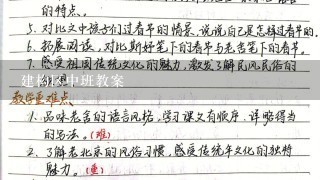 的特点。
5. 对比文中孩子们过春节的情景,说说自己是怎样过春节的。
6. 拓展阅读,对比斯妤笔下的春节与老舍笔下的春节。
7. 感受祖国传统文化的魅力,激发了解民风民俗的
建构区中班教案
教学重难点
1. 品味老舍的语言风格,学习课文有顺序、详略得当
的写法。(难)
2. 了解老北京的风俗习惯,感受传统年文化的独特
魅力。(重)